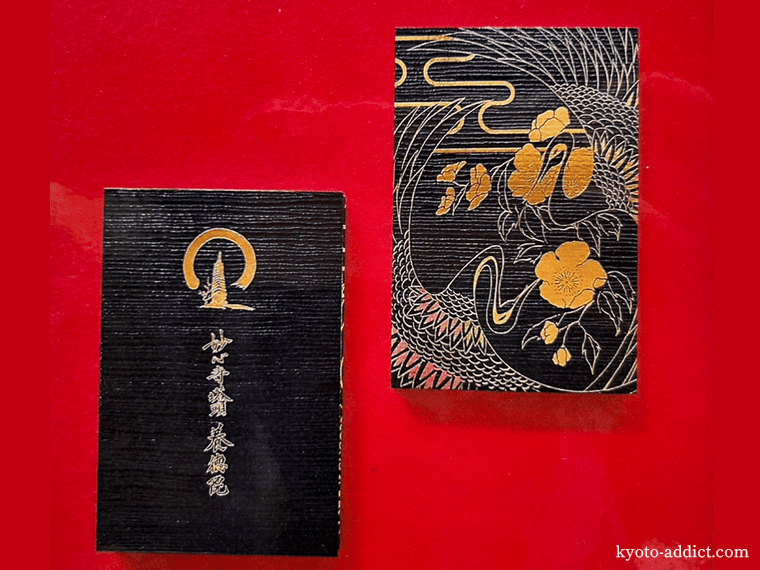 妙心寺塔頭 養徳院
kyoto-addict.com